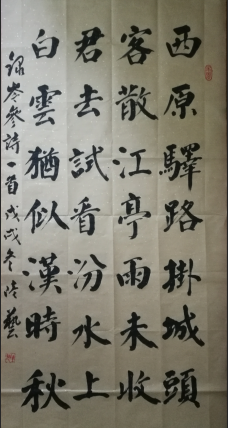 西原驛路掛城頭
客散江亭雨未收
君去試看汾水上
白雲猶似漢時秋
錄岑參詩一首戊戌冬
藝